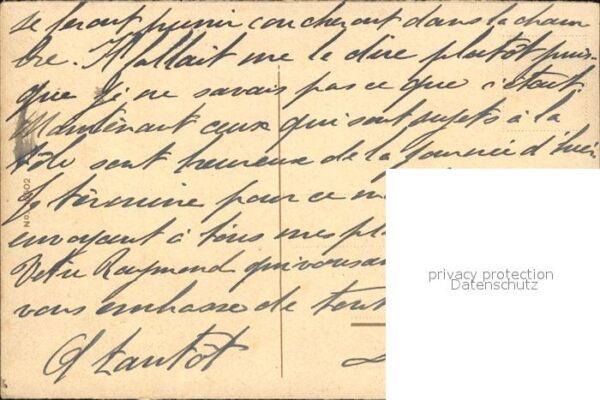 se feront punir coucheront dans la cham
bre. Il fallait me le dire plutôt puis-
que je ne savais pas ce que c'était
Maintenant ceux qui sont sujets à la
tôle sont heureux de la journée d'hier
Je termine pour ce m
envoyant à tous mes pl
Petit Raymond qui vous
vous embrasse de tout
A tantôt
No. 602
privacy protection
Datenschutz